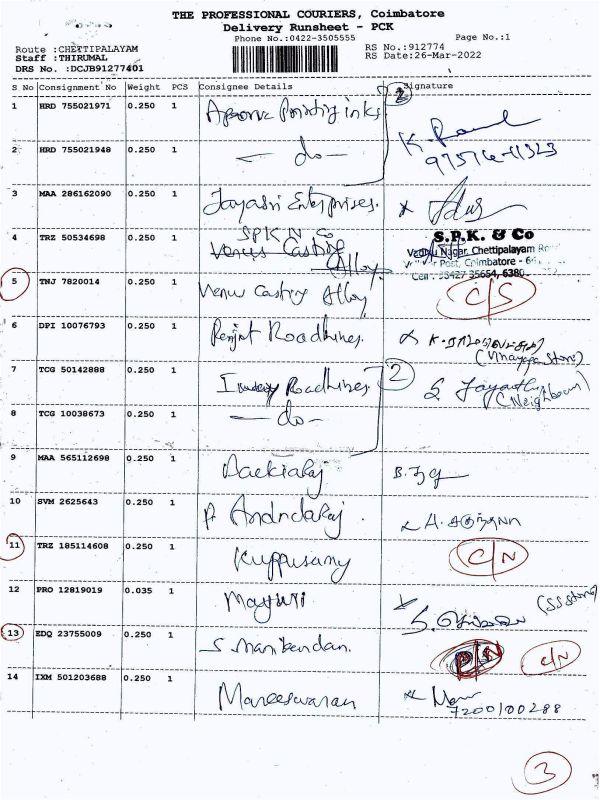 THE PROFESSIONAL COURIERS, Coimbatore
Delivery Runsheet - PCK
Phone No.:0422-3505555
Page No.:1
Route :CHETTIPALAYAM
Staff :THIRUMAL
DRS No. :DCJB91277401
RS No.:912774
RS Date:26-Mar-2022
S No Consignment No Weight PCS Consignee Details Signature
1 HRD 755021971 0.250 1 Printing inks 2
2 HRD 755021948 0.250 1 — do —
3 MAA 286162090 0.250 1 Jayasri Enterprises.
4 TRZ 50534698 0.250 1 SPK N Co
Venus Casting
Alloy
S.P.K. & Co
Nagar, Chettipalayam
Post, Coimbatore - 64
5 TNJ 7820014 0.250 1 Venus Casting Alloy C/S
6 DPI 10076793 0.250 1 Roadlines
(Vinayaga Store)
7 TCG 50142888 0.250 1 Roadlines 2
S. Jayanthi
(Neighbour)
8 TCG 10038673 0.250 1 — do —
9 MAA 565112698 0.250 1
10 SVM 2625643 0.250 1 P
11 TRZ 185114608 0.250 1 Kuppusamy C/N
12 PRO 12819019 0.035 1 Mayuri
(SS Store)
13 EDQ 23755009 0.250 1 S Manikandan. C/N
14 IXM 501203688 0.250 1 Mareeswaran
7200100288
3